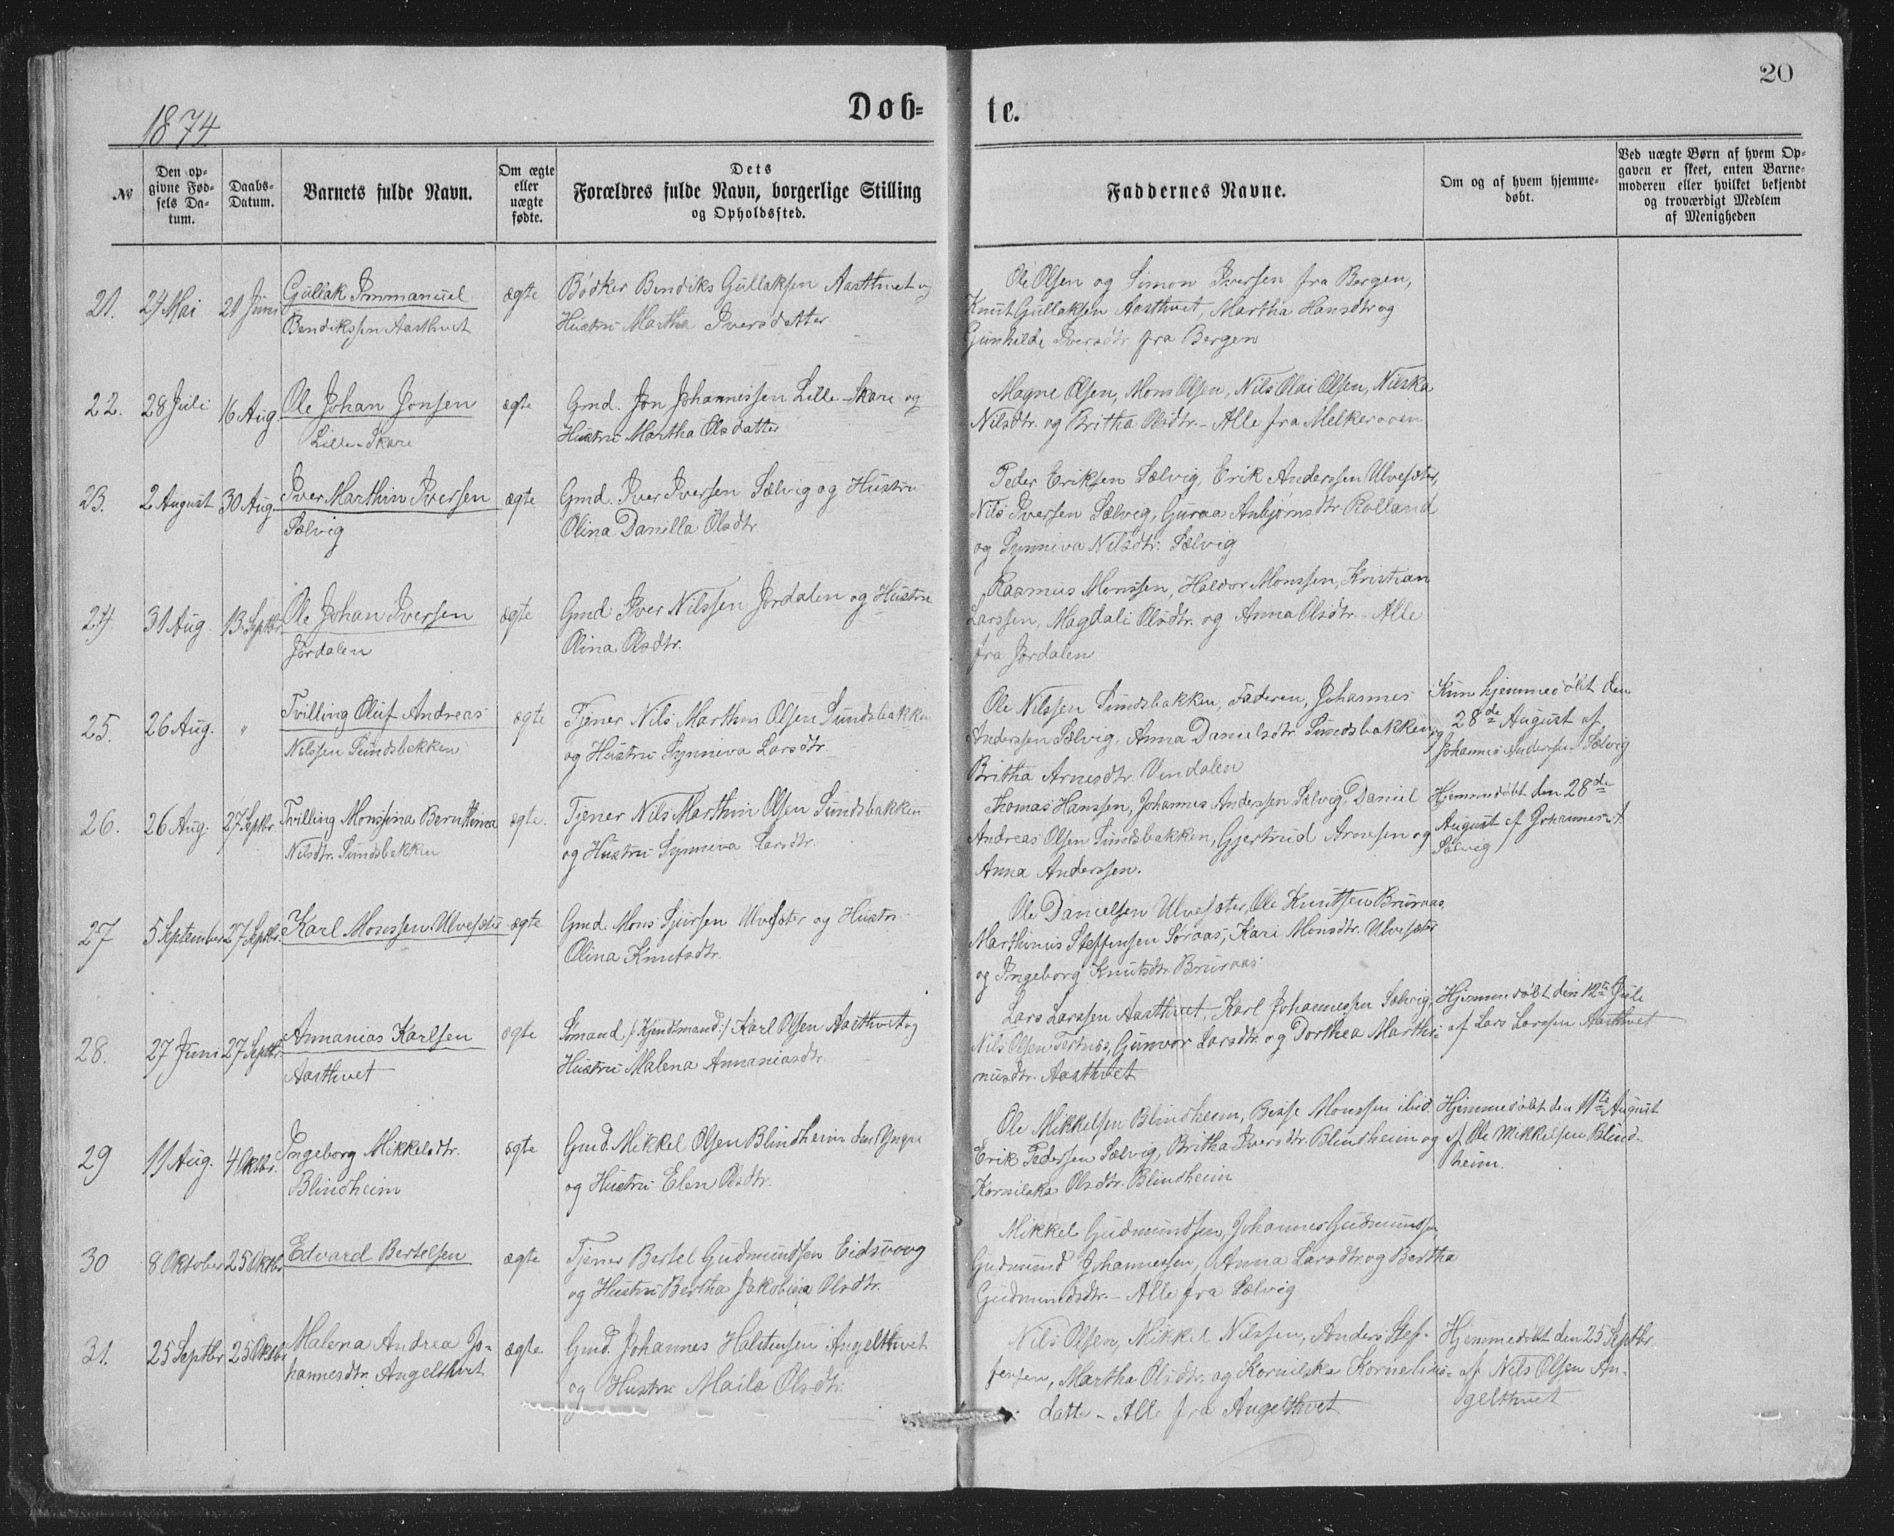 20
1874
Døb-
te.
№
Den op-
givne Fød-
sels Da-
tum.
Daabs-
Datum.
Barnets fulde Navn.
Om ægte
eller
uægte
fødte.
Dets
Forældres fulde Navn, borgerlige Stilling
og Opholdssted.
Faddernes Navne.
Om og af hvem hjemme-
døbt.
Ved uægte Børn af hvem Op-
gaven er skeet, enten Barne-
moderen eller hvilket bekjendt
og troværdigt Medlem
af Menigheden
21. 24 Mai 21 Juni
Gullak Immanuel
Bendiksen Aasthvet
ægte
Bødker Bendiks Gullaksen Aasthvet og
Hustru Martha Iversdatter
Ole Olsen og Simon Iversen fra Bergen,
Knut Gullaksen Aasthvet, Martha Hansdtr og
Gunhilde Iversdtr fra Bergen
22. 28 Juli 16 Aug.
Ole Johan Jonsen
Lille-Skare
ægte
Gmd. Jon Johannissen Lille-Skare og
Hustru Martha Olsdatter
Magne Olsen, Mons Olsen, Nils Olai Olsen, Nilska
Nilsdtr. og Britha Olsdtr. - Alle fra
23. 2 August 30 Aug.
Iver Marthin Iversen
Sælvig
ægte
Gmd. Iver Iversen Sælvig og Hustru
Olina Danilla Olsdtr
Peder Eriksen Sælvig, Erik Anderssen Ulvesæter,
Nils Iversen Sælvig, Guraa Anbjørnsdtr Rolland
og Synneva Nilsdtr. Sælvig
24 31 Aug. 13 Septbr.
Ole Johan Iversen
Jordalen
ægte
Gmd Iver Nilssen Jordalen og Hustru
Olina Olsdtr.
Rasmus Monssen, Haldor Monssen, Kristian
Larssen, Magdali Olsdtr. og Anna Olsdtr - Alle
fra Jordalen
25. 26 Aug. "
Tvilling Oluf Andreas
Nilssen Sundsbakken
ægte
Tjener Nils Marthin Olsen Sundsbakken
og Hustru Synneva Larsdtr.
Ole Nilssen Sundsbakken, Faderen, Johannes
Anderssen Sælvig, Anna Danielsdtr Sundsbakken og
Britha Arnesdtr. Vindalen
Kun hjemmedøbt den
28de August af
Johannes Anderssen Sælvig
26. 26 Aug. 27 Septbr.
Tvilling Monsina Bernthina
Nilsdtr. Sundsbakken
ægte.
Tjener Nils Marthin Olsen Sundsbakken
og Hustru Synneva Larsdtr
Thomas Hanssen, Johannes Anderssen Sælvig, Daniel
Andreas Olsen Sundsbakken, Gjertrud Arnesen og
Anna Anderssen.
Hjemmedøbt den 28de
August af Johannes A
Sælvig
27 5 September 27 Septbr.
Karl Monssen Ulvesæter
ægte
Gmd. Mons Sjursen Ulvesæter og Hustru
Olina Knutsdtr.
Ole Danielsen Ulvesæter, Ole Knutsen Bruraas,
Marthinus Steffensen Søraas, Kari Monsdtr. Ulvesæter
og Ingeborg Knutsdtr Bruraas
28. 27 Juni 27 Septbr.
Annanias Karlsen
Aasthvet
ægte
Smand /: Kjendsmand :/ Karl Olsen Aasthvet og
Hustru Malena Annaniasdtr
Lars Larssen Aasthvet, Karl Johannessen Sælvig,
Nils Olsen Tertnæs, Gunvor Larsdtr. og Dorthea Marthi-
nusdtr. Aasthvet
Hjemmedøbt den 12te Jule
af Lars Larssen Aasthvet
29 11 Aug. 4 Oktbr.
Ingeborg Mikkelsdtr.
Blindheim
ægte
Gmd. Mikkel Olsen Blindheim den Yngre
og Hustru Elen Olsdtr.
Ole Mikkelsen Blindheim, Monssen ibid.
Erik Pedersen Sælvig, Britha Iversdtr. Blindheim og
Kornilska Olsdtr. Blindheim
Hjemmedøbt den 11te August
af Ole Mikkelsen Blind-
heim.
30 8 Oktober 25 Oktbr.
Edvard Bertelsen
ægte
Tjener Bertel Gudmundsen Eidsvaag
og Hustru Bertha Jakobina Olsdtr.
Mikkel Gudmundsen, Johannes Gudmundsen,
Gudmund Johannesen, Anna Larsdtr og Bertha
Gudmundsdtr. - Alle fra Sælvig
31. 25 Septbr 25 Oktbr
Malena Andrea Jo-
hannesdtr. Angelthvet
ægte
Gmd. Johannes Halstensen Angelthvet
og Hustru Maila Olsdtr.
Nils Olsen, Mikkel Nilssen, Anders Stef-
fensen, Martha Olsdtr. og Kornilska Kornelius-
datter - Alle fra Angelthvet
Hjemmedøbt den 25 Septbr.
af Nils Olsen An-
gelthvet